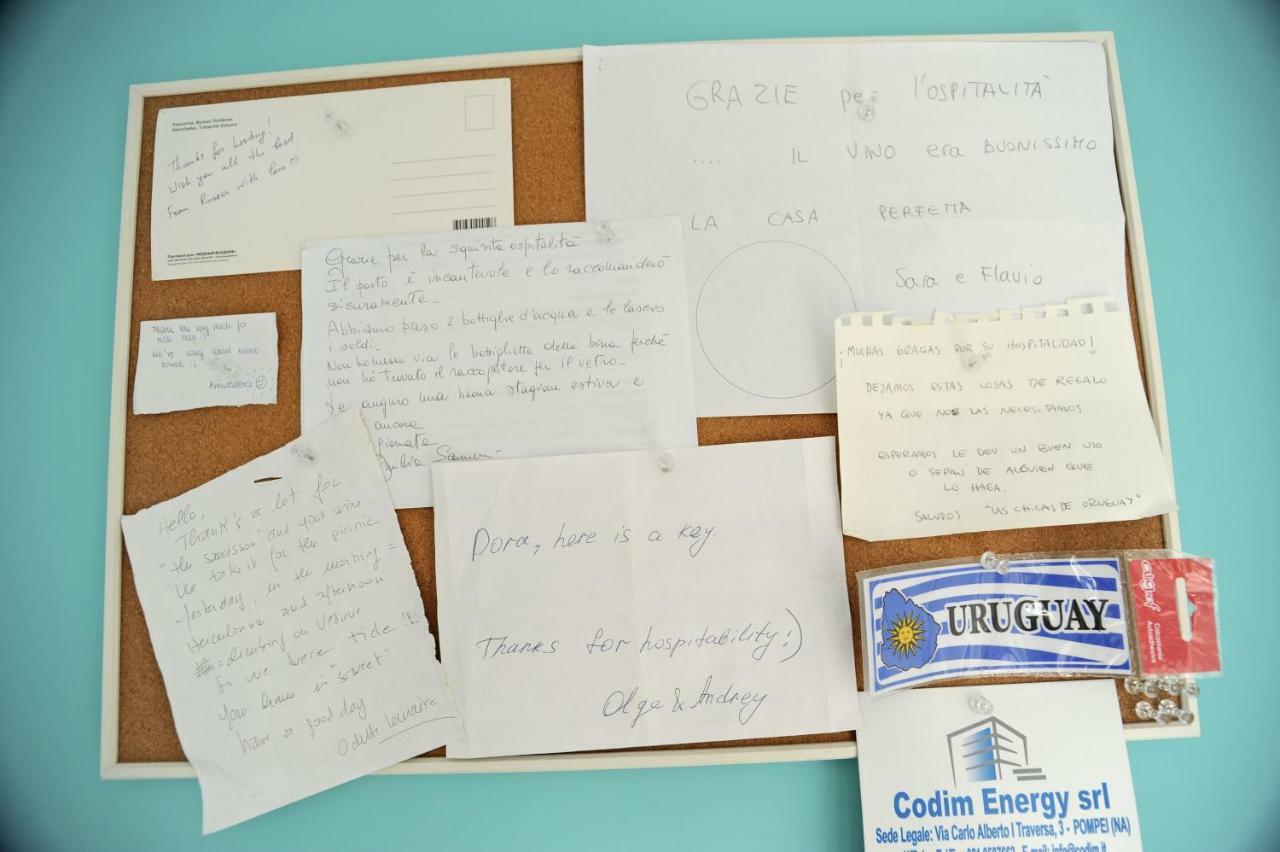 Камчатка. Вулкан Толбачик
Kamchatka. Tolbachik Volcano
Thanks for hosting!
Wish you all the best
From Russia with love
GRAZIE per l'OSPITALITÀ
.... IL VINO era BUONISSIMO
LA CASA PERFETTA
Sara e Flavio
Grazie per la squisita ospitalità
Il posto è incantevole e lo raccomanderò
sicuramente.
Abbiamo preso 2 bottiglie d'acqua e le lascio
i soldi.
Non ho messo via le bottigliette della birra perché
non ho trovato il raccoglitore per il vetro.
Le auguro una buona stagione estiva e
ancora
Thank you very much for
nice stay!
We're sorry about
towel :(
¡MUCHAS GRACIAS POR SU HOSPITALIDAD!
DEJAMOS ESTAS COSAS DE REGALO
YA QUE NO LAS NECESITAMOS
ESPERAMOS LE DEN UN BUEN USO
O SEPAN DE ALGUIEN QUE
LO HAGA.
SALUDOS "LAS CHICAS DE URUGUAY"
Hello,
Thank's a lot for
"the saucisson" and your wine.
We take it for the picinic
yesterday, in the morning =
Herculanum and afternoon
= climbing on Vesuve.
So we were tide !!.
your home is "sweet"
have a good day.
Odette
Dora, here is a key.
Thanks for hospitability:)
Olga & Andrey
URUGUAY
Calcomanía
Autoadhesiva
Codim Energy srl
Sede Legale: Via Carlo Alberto I Traversa, 3 - POMPEI (NA)
E-mail: info@codim.it